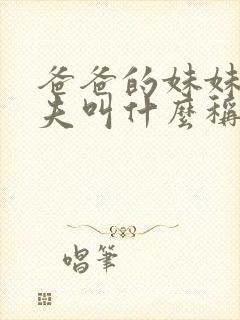 爸爸的妹妹
夫叫什麼稱
唱筆